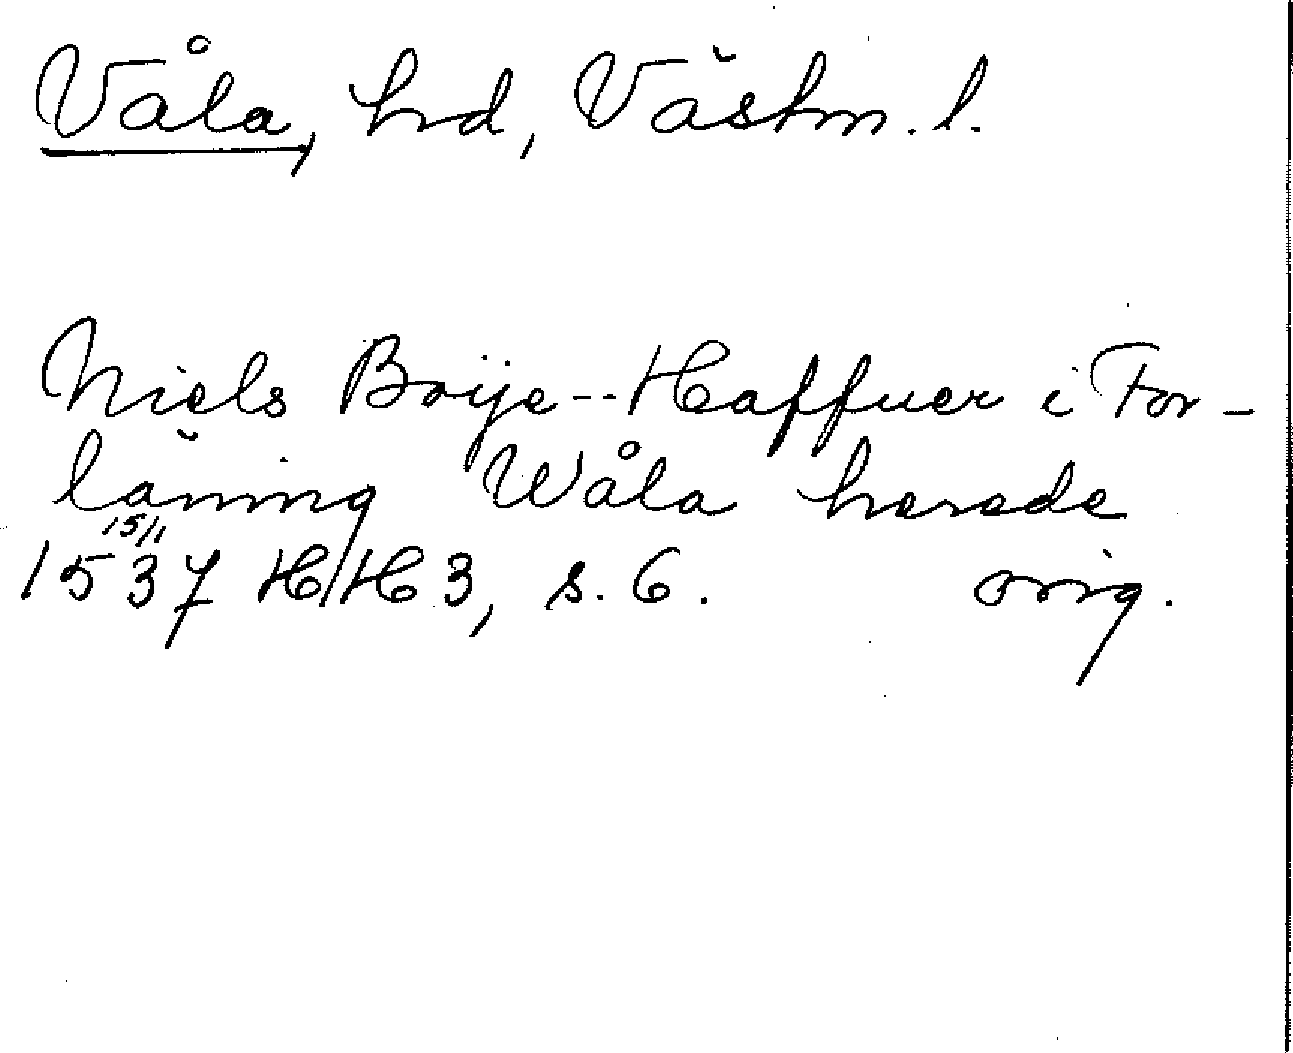 Våla, hd, Västm. l.
Niels Boije -- Haffuer i For-
läning Wåla herade
15/1
1537 HH 3, s. 6. orig.